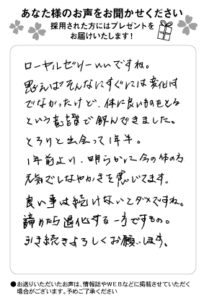 あなた様のお声をお聞かせください
採用された方にはプレゼントを
お届けいたします!
ローヤルゼリーいいですね。
思えばそんなにすぐには変化は
でなかったけど、体に良いものをとる
という意識で飲んできました。
とろりと出会って1年半。
1年前より、明らかに今の体の方
元気でしなやかさを感じてます。
良い事は続けないとダメですね。
諦めたら退化する一方ですもの。
引き続きよろしくお願いします。
●お送りいただいたお声は、情報誌やWEBなどに掲載させていただく
場合がございます。予めご了承ください